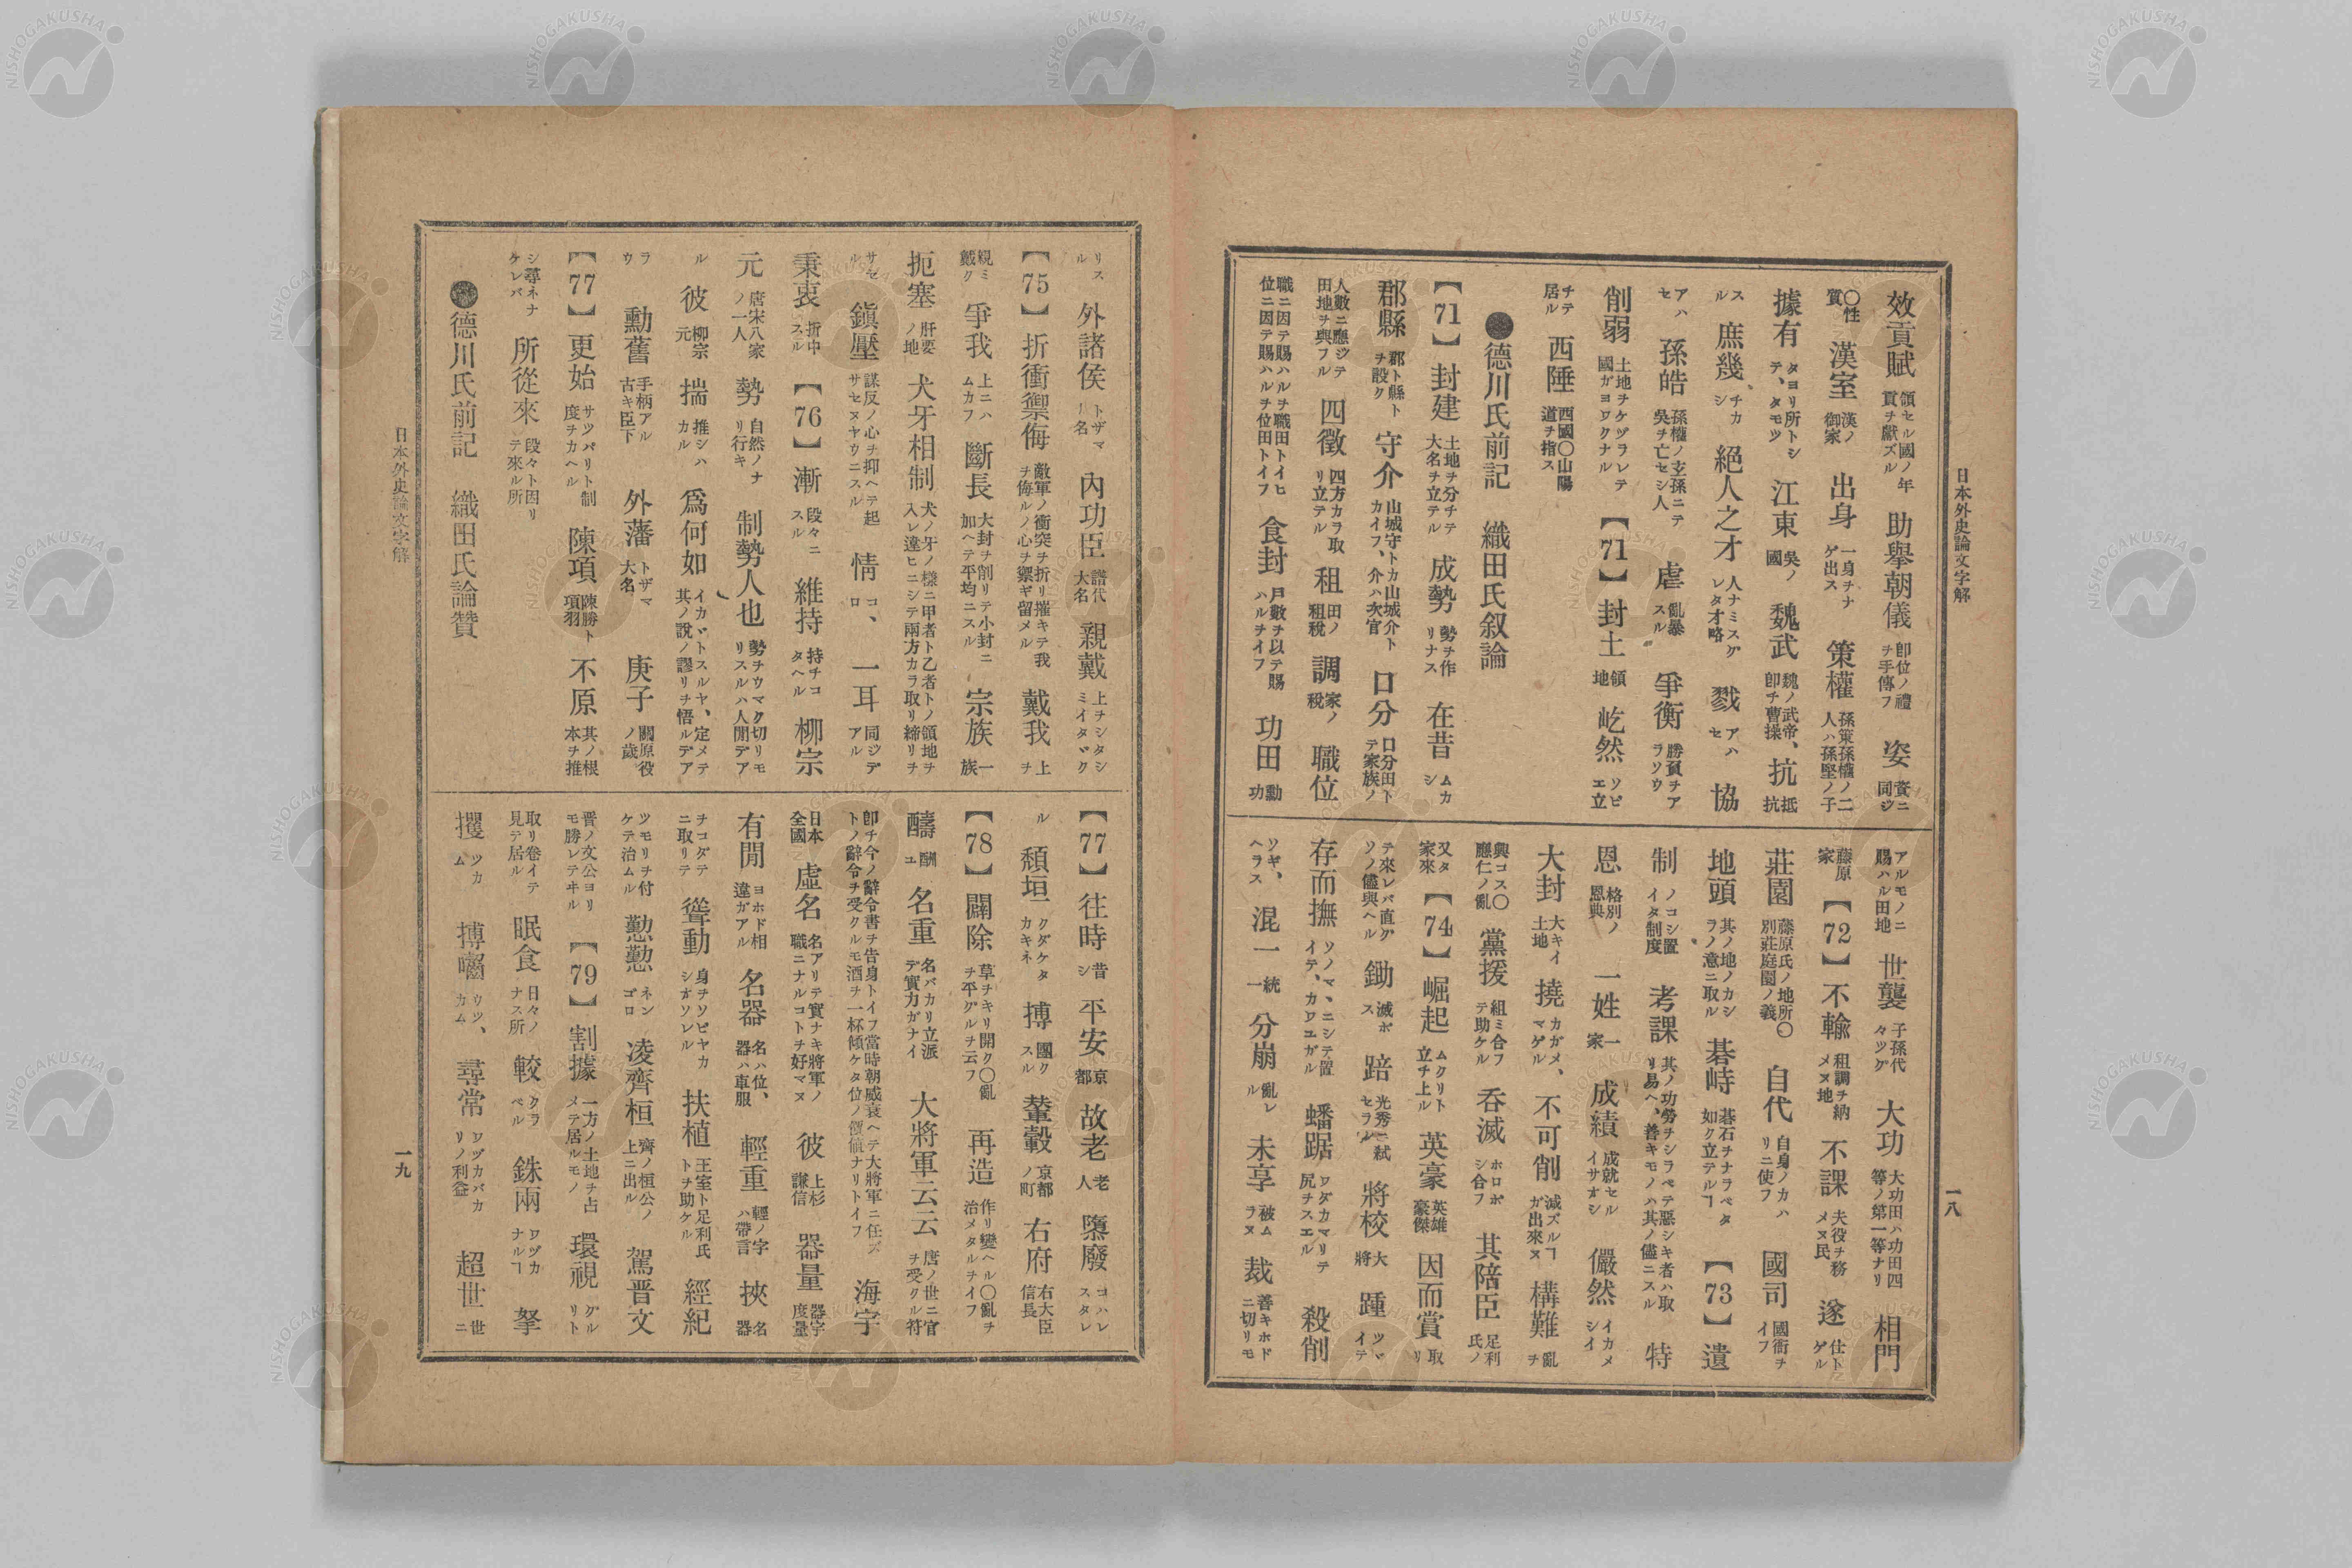 日本外史論文字解
一八
效貢賦 領セル國ノ年貢チ獻ズル 助擧朝儀 卽位ノ禮チ手傳フ 姿 資ニ同ジ
〇性質 漢室 漢ノ御家 出身 一身チナゲ出ス 策權 孫策孫權ノ二人ハ孫堅ノ子
據有 タヨリ所トシテ、タモツ 江東 吳ノ國 魏武 魏ノ武帝、卽チ曹操 抗 抵抗
スル 庶幾 チカシ 絕人之才 人ナミスグレタ才略 戮 アハセ 協
アハセ 孫皓 孫權ノ玄孫ニテ吳チ亡セシ人 虐 亂暴スル 爭衡 勝負チアラソウ
削弱 土地チケヅラレテ國ガヨワクナル 【71】 封土 領地 屹然 ソビエ立
チテ居ル 西陲 西國〇山陽道チ指ス
●德川氏前記 織田氏叙論
【71】 封建 土地チ分チテ大名チ立テル 成勢 勢チ作リナス 在昔 ムカシ
郡縣 郡ト縣トチ設ク 守介 山城守トカ山城介トカイフ、介ハ次官 口分 口分田トテ家族ノ
人數ニ應ジテ田地チ與フル 四徵 四方カラ取リ立テル 租 田ノ租稅 調 家ノ稅 職位
職ニ因テ賜ハルチ職田トイヒ位ニ因テ賜ハルチ位田トイフ 食封 戶數チ以テ賜ハルチイフ 功田 勳功
アルモノニ賜ハル田地 世襲 子孫代々ツグ 大功 大功田ハ功田四等ノ第一等ナリ 相門
藤原家 【72】 不輸 租調チ納メヌ地 不課 夫役チ務メヌ民 遂 仕トゲル
莊園 藤原氏ノ地所〇別莊庭園ノ義 自代 自身ノカハリニ使フ 國司 國衙チイフ
地頭 其ノ地ノカシラノ意ニ取ル 碁峙 碁石チナラベタ如ク立テルヿ 【73】 遺
制 ノコシ置イタ制度 考課 其ノ功勞チシラベテ惡シキ者ハ取リ易ヘ、善キモノハ其ノ儘ニスル 特
恩 格別ノ恩典 一姓 一家 成績 成就セルイサオシ 儼然 イカメシイ
大封 大キイ土地 撓 カガメ、マゲル 不可削 減ズルヿガ出來ヌ 構難 亂チ
興コス〇應仁ノ亂 黨援 組ミ合フテ助ケル 呑滅 ホロボシ合フ 其陪臣 足利氏ノ
又タ家來 【74】 崛起 ムクリト立チ上ル 英豪 英雄豪傑 因而賞 取リ
テ來レバ直グソノ儘與ヘル 鋤 滅ボス 踣 光秀ニ弑セラル 將校 大將 踵 ツヾイテ
存而撫 ソノマヽニシテ置イテ、カワユガル 蟠踞 ワダカマリテ尻チスエル 殺削
ソギ、ヘラス 混一 統一 分崩 亂レル 未享 破ムラヌ 裁 善キホドニ切リモ
リスル 外諸侯 トザマ大名 內功臣 譜代大名 親戴 上チシタシミイタヾク
【75】 折衝禦侮 敵軍ノ衝突チ折リ摧キテ我チ侮ルノ心チ禦ギ留メル 戴我 上チ
親ミ戴ク 爭我 上ニハムカフ 斷長 大封チ削リテ小封ニ加ヘテ平均ニスル 宗族 一族
扼塞 肝要ノ地 犬牙相制 犬ノ牙ノ樣ニ甲者ト乙者トノ領地チ入レ違ヒニシテ兩方カラ取リ締リチ
サセル 鎭壓 謀反ノ心チ抑ヘテ起サセヌヤウニスル 情 コヽロ 一耳 同ジデアル
秉衷 折中スル 【76】 漸 段々ニスル 維持 持チコタヘル 柳宗
元 唐宋八家ノ一人 勢 自然ノナリ行キ 制勢人也 勢チウマク切リモリスルハ人閒デア
ル 彼 柳宗元 揣 推シハカル 爲何如 イカヾトスルヤ、定メテ其ノ說ノ謬リチ悟ルデア
ラウ 勳舊 手柄アル古キ臣下 外藩 トザマ大名 庚子 關原役ノ歲
【77】 更始 サツパリト制度チカヘル 陳項 陳勝ト項羽 不原 其ノ根本チ推
シ尋ネナケレバ 所從來 段々ト因リテ來ル所
●德川氏前記 織田氏論贊
【77】 往時 昔シ 平安 京都 故老 老人 隳廢 コハレスタレ
ル 頹垣 クダケタカキネ 搏 團クスル 輦轂 京都ノ町 右府 右大臣信長
【78】 闢除 草チキリ開ク〇亂チ平グルチ云フ 再造 作リ變ヘル〇亂チ治メタルチイフ
醻 酬ユ 名重 名バカリ立派デ實力ガナイ 大將軍云云 唐ノ世ニ官チ受クル符
卽チ今ノ辭令書チ告身トイフ當時朝威衰ヘテ大將軍ニ任ズトノ辭令チ受クルモ酒チ一杯傾ケタ位ノ價値ナリトイフ 海宇
日本全國 虛名 名アリテ實ナキ將軍ノ職ニナルコトチ好マヌ 彼 上杉謙信 器量 器宇度量
有閒 ヨホド相違ガアル 名器 名ハ位、器ハ車服 輕重 輕ノ字ハ帶言 挾 名器
チコダテニ取リテ 聳動 身チソビヤカシオソレル 扶植 王室ト足利氏トチ助ケル 經紀
ツモリチ付ケテ治ムル 懃懃 ネンゴロ 凌齊桓 齊ノ桓公ノ上ニ出ル 駕晋文
晋ノ文公ヨリモ勝レテヰル 【79】 割據 一方ノ土地チ占メテ居ルモノ 環視 グルリト
取リ卷イテ見テ居ル 眠食 日々ノナス所 較 クラベル 銖兩 ワヅカナルヿ 拏
攫 ツカム 搏囓 ウツ、カム 尋常 ワヅカバカリノ利益 超世 世ニ
日本外史論文字解
一九